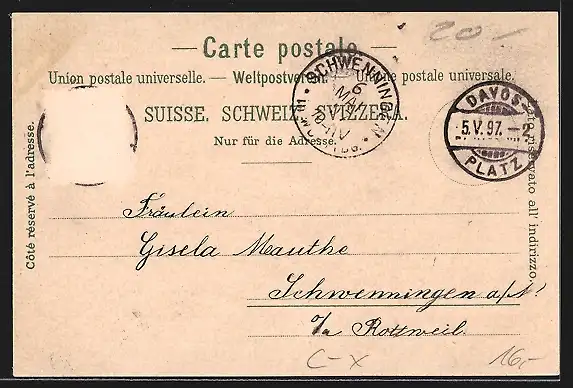 20.-
— Carte postale. —
Union postale universelle. — Weltpostverein — Unione postale universale.
SUISSE. SCHWEIZ. SVIZZERA.
Nur für die Adresse.
Côté réservé à l'adresse.
SCHWENNINGEN
6
MAI
DAVOS-
5.V.97.-2
PLATZ
all' indirizzo.
Fräulein
Gisela Mauthe
Schwenningen a/N.
o/a Rottweil.
C-X
16.-